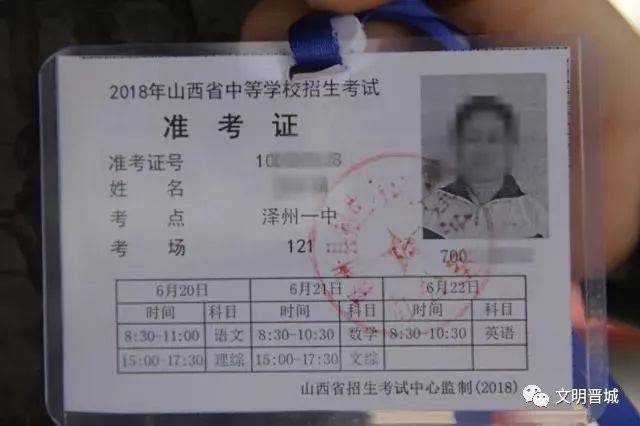 2018年山西省中等学校招生考试
准考证
准考证号 10 8
姓名
考点 泽州一中
考场 121
700
6月20日 6月21日 6月22日
时间 科目 时间 科目 时间 科目
8:30-11:00 语文 8:30-10:30 数学 8:30-10:30 英语
15:00-17:30 理综 15:00-17:30 文综
山西省招生考试中心监制(2018)
文明晋城